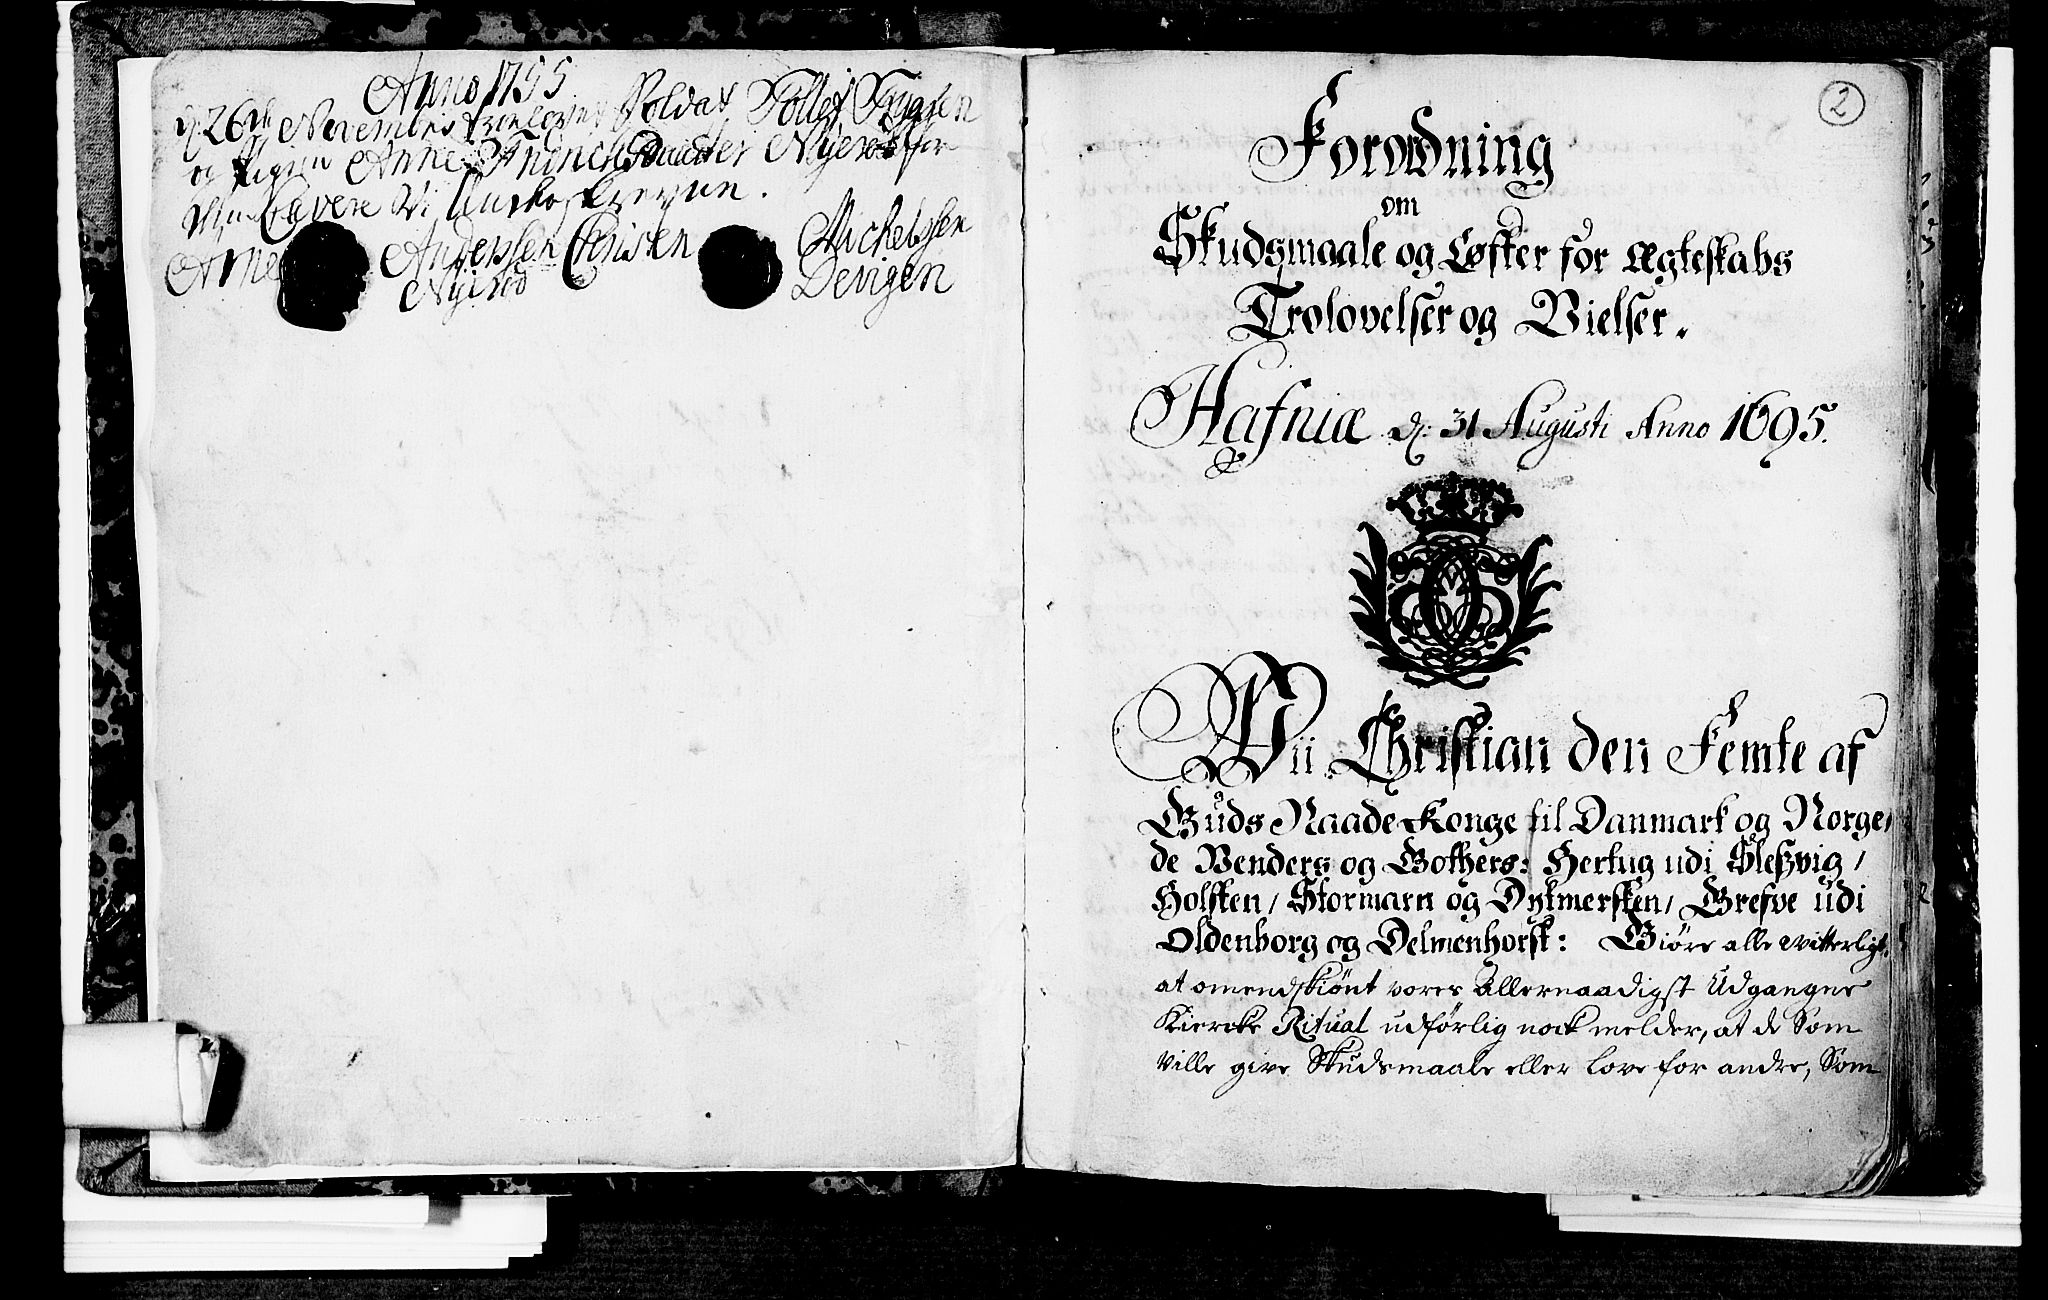 Anno 1755
d. 26de Novembris trolovet Soldat Tollef Tygesen
og Pigen Anne Daatter Nyerød for
Cavere Vi Underskrevne.
Arne Anderssen Christen Michelssen
Nyerød Devigen
2
Forordning
om
Skudsmaale og Løfter for Ægteskabs
Trolovelser og Vielser.
Hafniæ d: 31 Augusti Anno 1695.
Wii Christian den Femte af
Guds Naade Konge til Danmark og Norge,
de Venders og Gothers: Hertug udi Sleßvig /
Holsten / Stormarn og Dytmersken / Grefve udi
Oldenborg og Delmenhorst: Giøre alle vitterligt,
at omendskiønt vores Allernaadigst Udgangne
Kiercke Ritual udførlig nock melder, at de Som
Ville give Skudsmaale eller Love for andre, Som